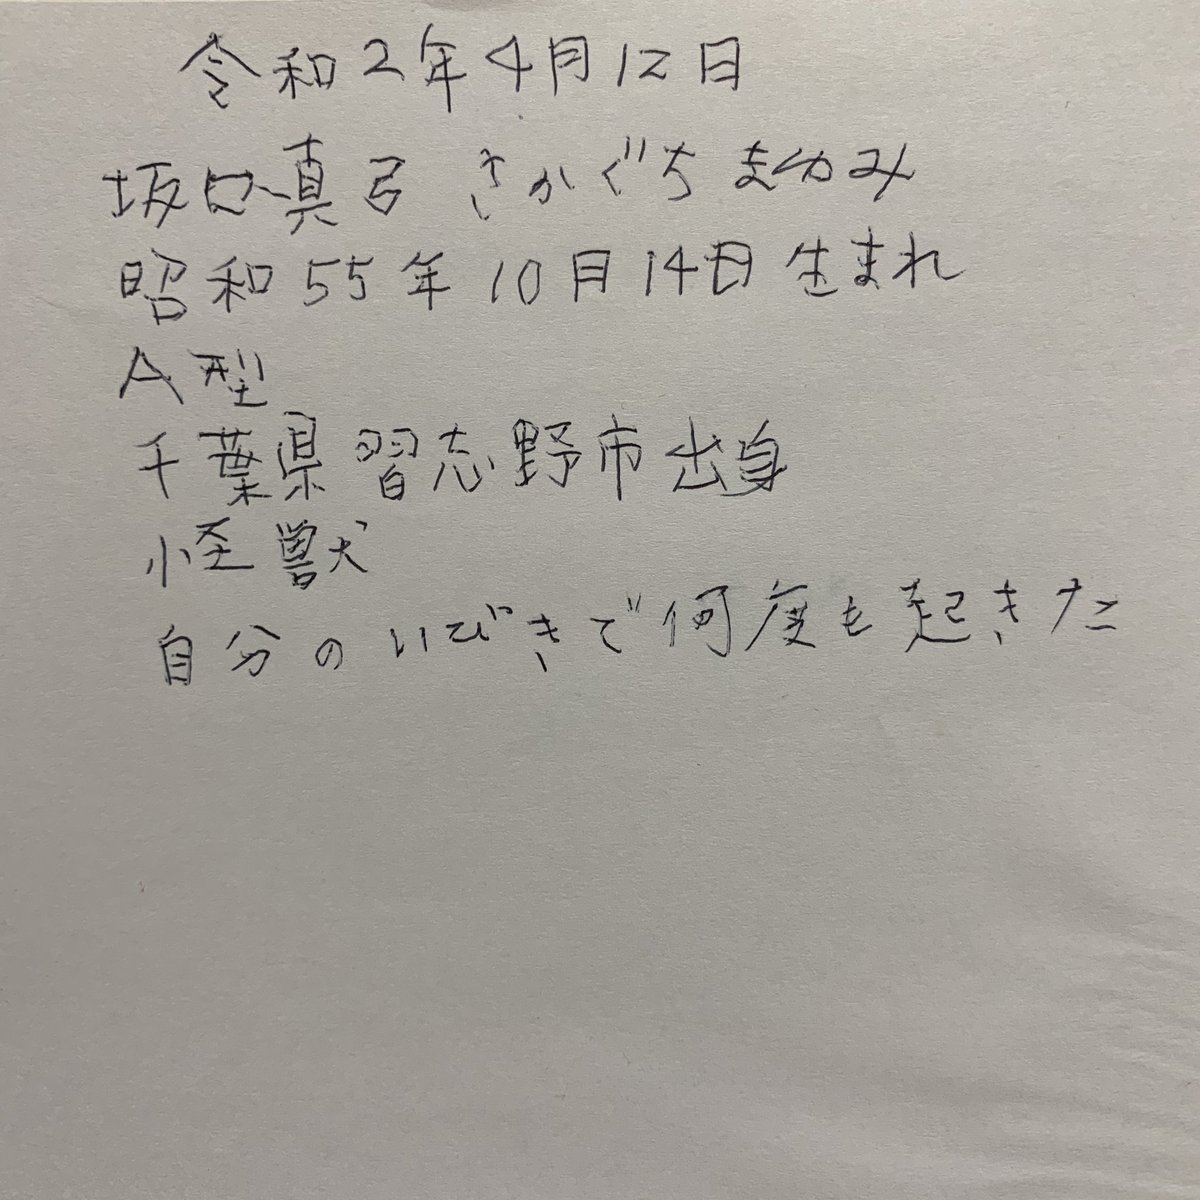 令和2年4月12日
坂口真弓 さかぐちまゆみ
昭和55年10月14日生まれ
A型
千葉県習志野市出身
怪獣
自分のいびきで何度も起きた